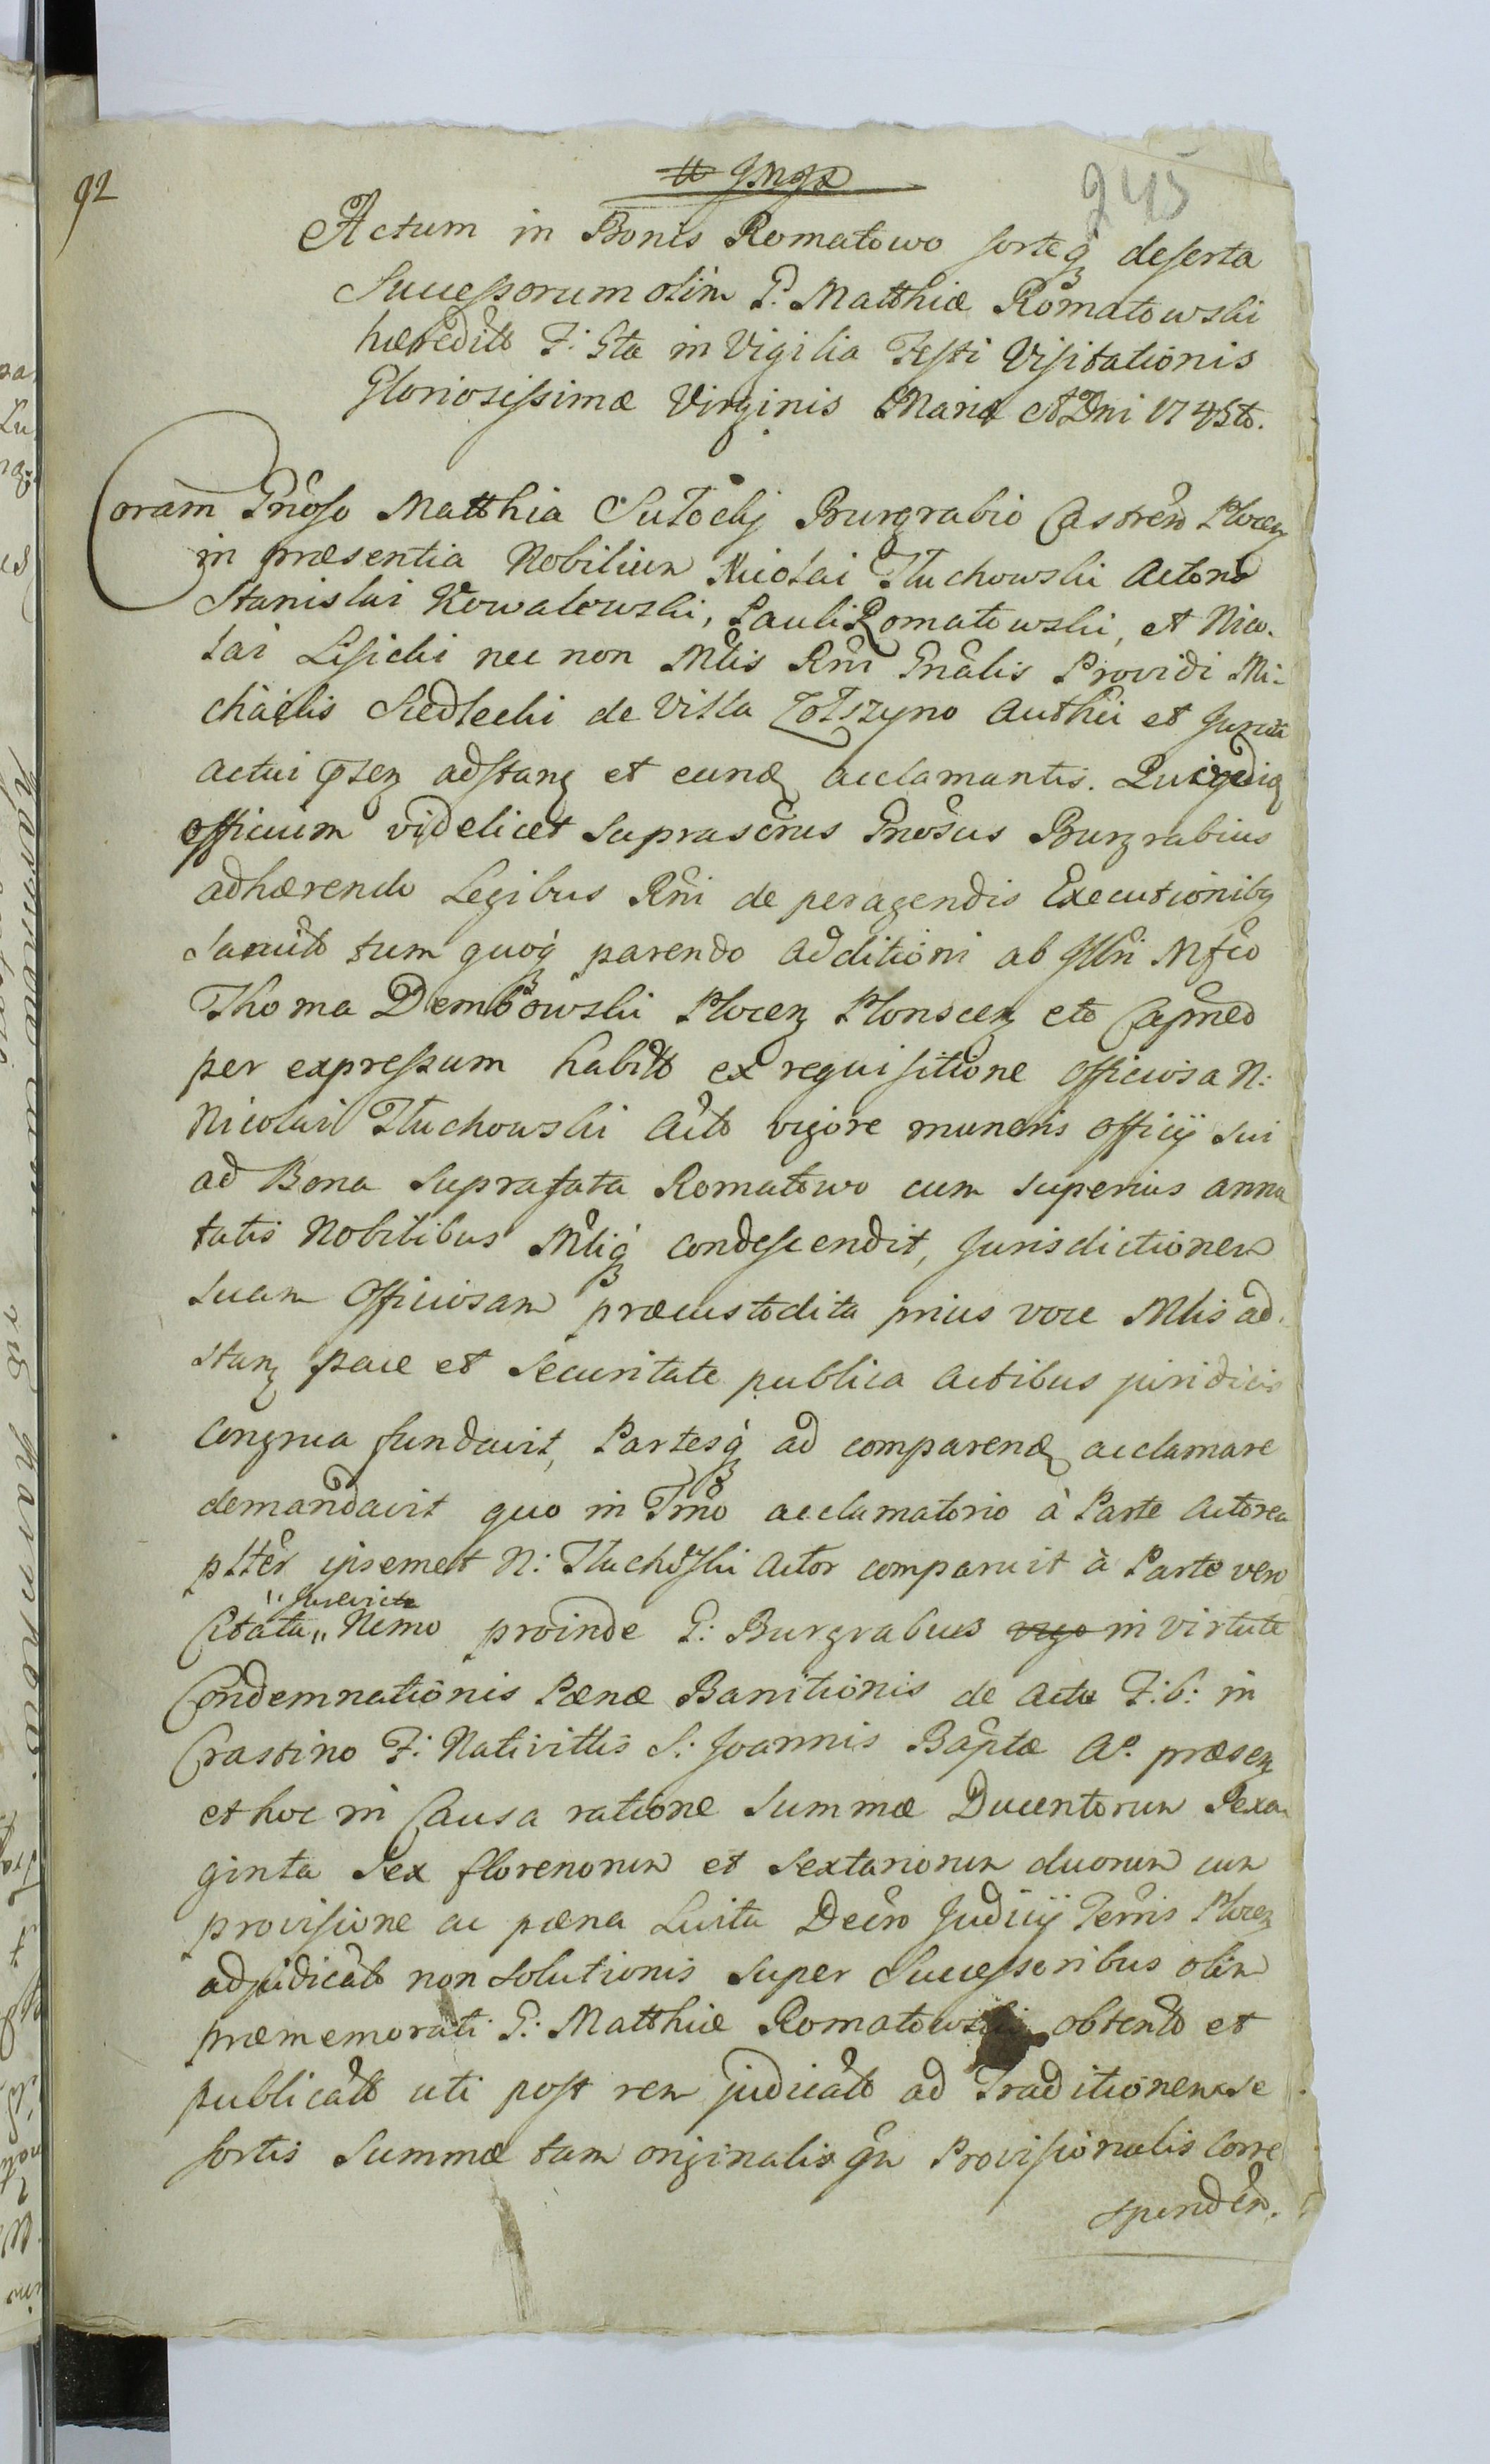 92
245
Actum in Bonis Romatowo sorteq deserta
Successorum olim G. Matthiæ Romatowski
hæredit F. 5ta in Vigilia Festi Visitationis
Gloriosissimæ Virginis Mariæ A Dni 1745to.
Coram Gnoso Matthia Sutocki Burgrabio Castren Plocen
in præsentia Nobilium Nicolai Tluchowski Actoris
Stanislai Kowalewski, Pauli Romatowski, et Nico-
lai Lisicki nec non Mlis Rni Gnalis Providi Mi-
chaelis Siedlecki de Villa authci et Jurati
actui psen adstan et eund acclamantis. Qui
officium videlicet suprascrus Gnosus Burgrabius
adhærendo Legibus Rni de peragendis Executionibq
Sancit tum quoq parendo additioni ab Illri Mfco
Thoma Dembowski Plocen Plonscen etc Capneo
per expressum habit ex requisitione officiosa N:
Nicolai Tluchowski Act vigore muneris officij sui
ad Bona suprafata Romatowo cum superius anno
tatis Nobilibus Mliq condescendit, Jurisdictionem
suam officiosam præcustodita prius voce Mlis ad-
stan pace et securitate publica actibus juridicis
congrua fundavit, Partesq ad comparend acclamare
demandavit quo in Tmo acclamatorio à Parte Actorea
plter ipsemet N: Tluchowski Actor comparuit à Parte vero
Citata „ Nemo proinde G: Burgrabius in virtute
Condemnationis Pænæ Banitionis de actu F: 6: in
Crastino F: Nativittis S: Joannis Baptæ Ao præsen
et hoc in Causa ratione Summæ Ducentorum Sexa-
ginta Sex florenorum et sextariorum duorum cum
provisione ac pæna Luita Decro Judicij Terris Plocen
adjudicat non solutionis super Successoribus olim
præmemorati G: Matthiæ Romatowski obtent et
publicat uti post rem judicat ad Traditionem se
sortis Summæ tam originalis qm Provisionalis corre
sponden.